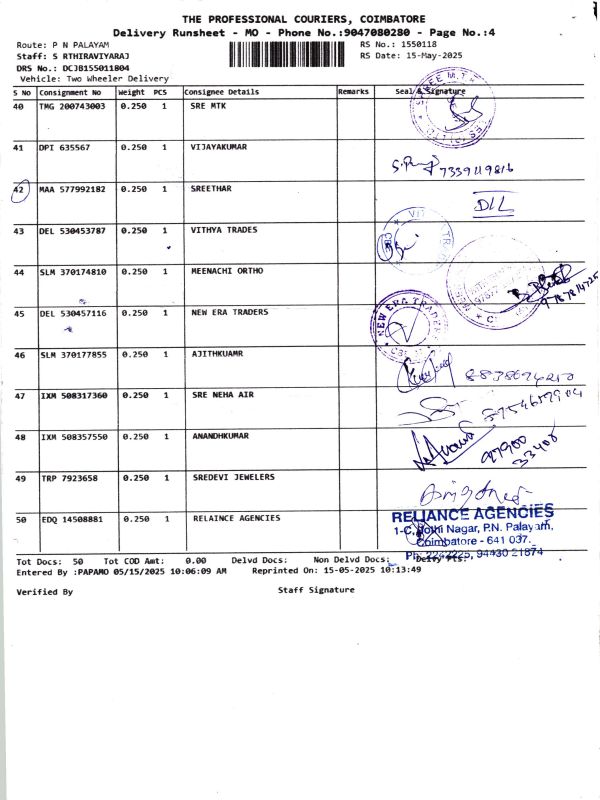 THE PROFESSIONAL COURIERS, COIMBATORE
Delivery Runsheet - MO - Phone No.:9047080280 - Page No.:4
Route: P N PALAYAM RS No.: 1550118
Staff: S RTHIRAVIYARAJ RS Date: 15-May-2025
DRS No.: DCJB155011804
Vehicle: Two Wheeler Delivery
S No Consignment No Weight PCS Consignee Details Remarks Seal & Signature
40 TMG 200743003 0.250 1 SRE MTK
41 DPI 635567 0.250 1 VIJAYAKUMAR
7339119816
42 MAA 577992182 0.250 1 SREETHAR
DLL
43 DEL 530453787 0.250 1 VITHYA TRADES
44 SLM 370174810 0.250 1 MEENACHI ORTHO
45 DEL 530457116 0.250 1 NEW ERA TRADERS
NEW ERA TRADERS
46 SLM 370177855 0.250 1 AJITHKUAMR
47 IXM 508317360 0.250 1 SRE NEHA AIR
48 IXM 508357550 0.250 1 ANANDHKUMAR
49 TRP 7923658 0.250 1 SREDEVI JEWELERS
50 EDQ 14508881 0.250 1 RELAINCE AGENCIES
RELIANCE AGENCIES
1-C, Jothi Nagar, P.N. Palayam,
Coimbatore - 641 037.
Ph: 2242225, 94430 21874
Tot Docs: 50 Tot COD Amt: 0.00 Delvd Docs: Non Delvd Docs: Delry Pts:
Entered By :PAPAMO 05/15/2025 10:06:09 AM Reprinted On: 15-05-2025 10:13:49
Verified By Staff Signature